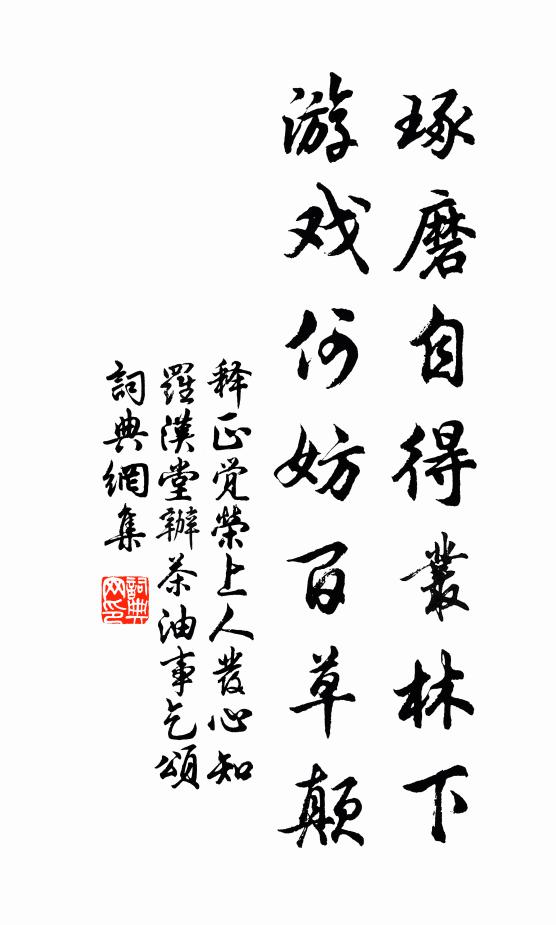 琢磨自得叢林下
游戏何妨百草颠
释正觉榮上人發心知
羅漢堂辦茶油事乞頌
詞典網集
詞典网印